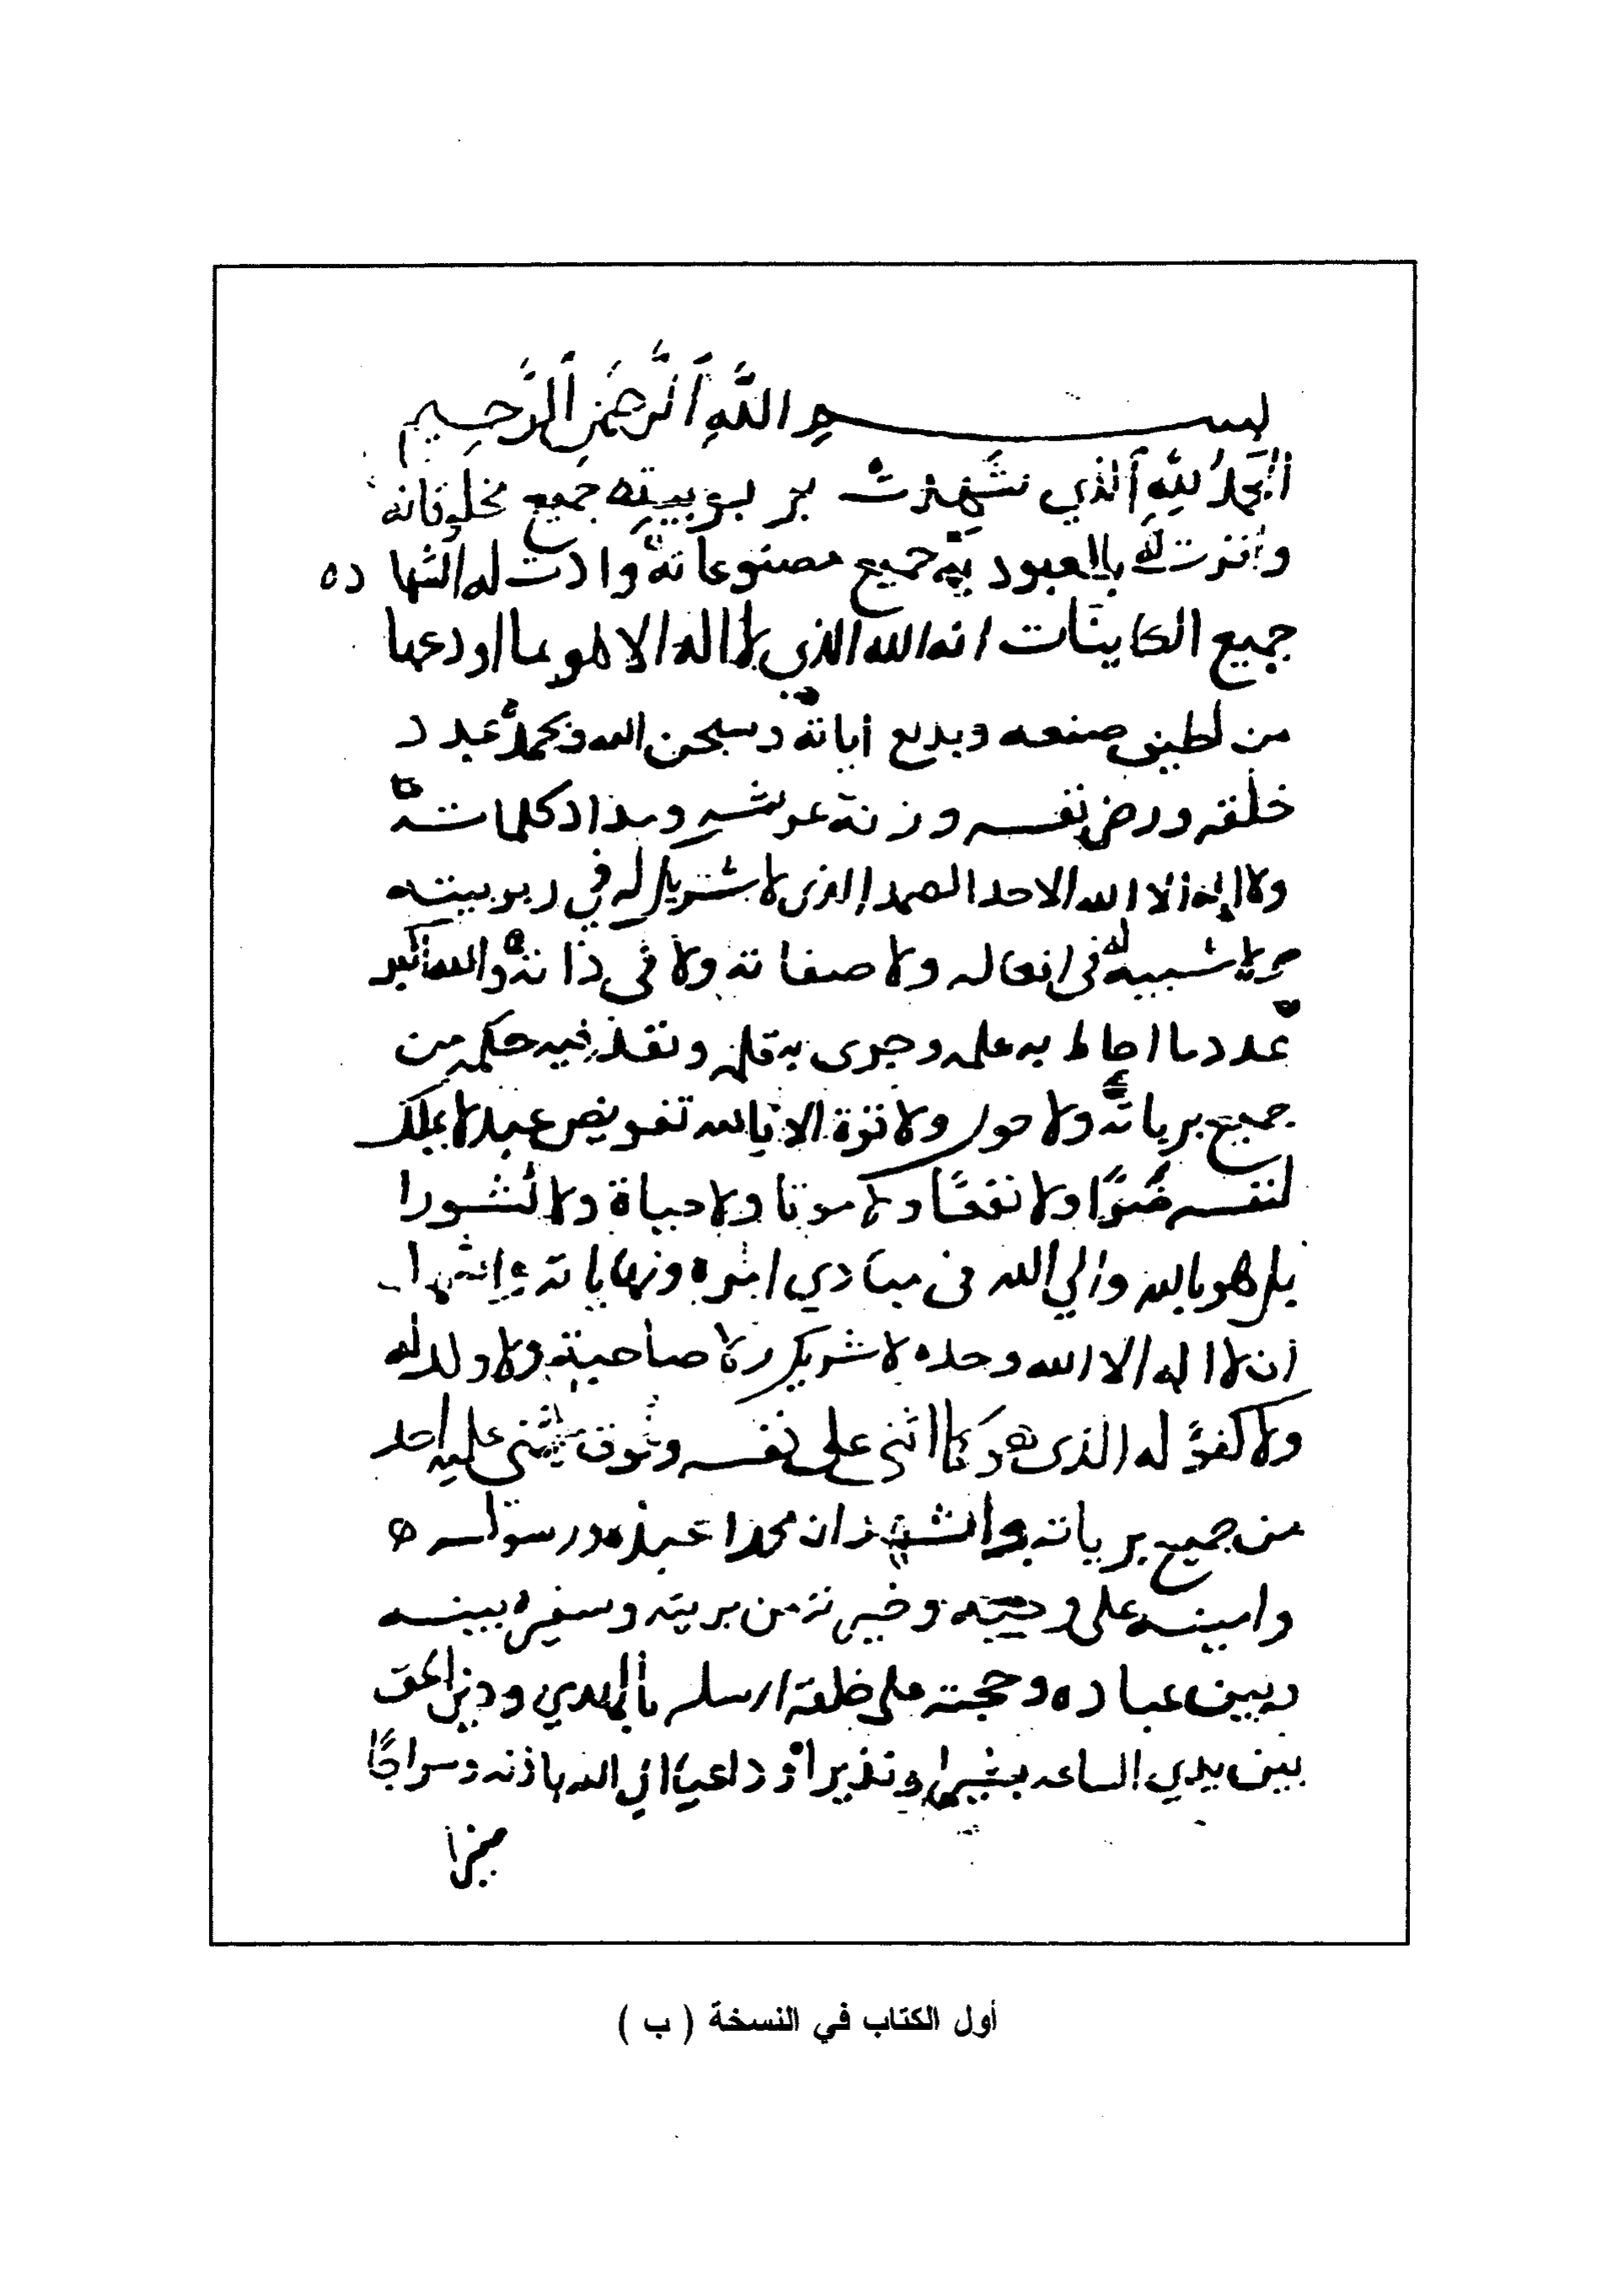 بسم اللَّهِ الرَّحمَنِ الرَّحِيم
الحمدُ لِلَّهِ الذي شَهِدَت بربوبيته جميع مخلوقاته
واقرت له بالعبوديه جميع مصنوعاته وادت له الشهاده
جميع الكاينات انه الله الذي لا اله الا هو بما اودعها
من لطيف صنعه وبديع اياته وسبحن الله وبحمده عدد
خلقه ورضى نفسه وزنة عرشه ومداد كلماته
ولا اله الا الله الاحد الصمد الذي لا شريك له في ربوبيته
ولا شبيه له في افعاله ولا صفاته ولا في ذاته والله اكبر
عدد ما احاط به علمه وجرى به قلمه ونفذ فيه حكمه من
جميع برياته ولا حول ولا قوة الا بالله تفويض عبد لا يملك
لنفسه ضرًا ولا نفعًا ولا موتا ولا حياة ولا نشورا
بل هو بالله والي الله في مبادي امره ونهاياته واشهد
ان لا اله الا الله وحده لا شريك له ولا صاحبة ولا ولد له
ولا كفؤ له الذي هو كما اثنى على نفسه وفوق يثنى عليه احد
من جميع برياته واشهد ان محمدا عبده ورسوله
وامينه على وحيه وخيرته من بريته وسفيره بينه
وبين عباده وحجته على خلقه ارسله بالهدي ودين الحق
بين يدي الساعه بشيرا ونذيرا وداعيًا الي الله باذنه وسراجًا
منيرا
أول الكتاب في النسخة ( ب )